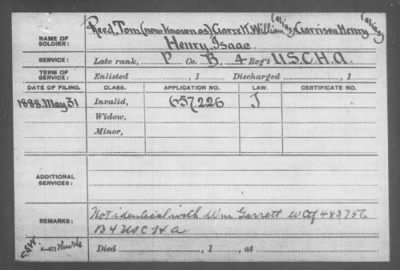 NAME OF SOLDIER: Reed, Tom (now known as) Garrett, William (alias) Garrison Henry (alias)
Henry Isaac.
SERVICE: Late rank, P Co. B, 4 Reg't U.S.C.H.A.
TERM OF SERVICE: Enlisted , 1 Discharged , 1
DATE OF FILING. CLASS. APPLICATION NO. LAW. CERTIFICATE NO.
1888. May 31 Invalid, 657226 J
Widow,
Minor,
ADDITIONAL SERVICES:
REMARKS: Not identical with Wm Garrett WC of 483756
B 4 USCHA
Died , 1 , at